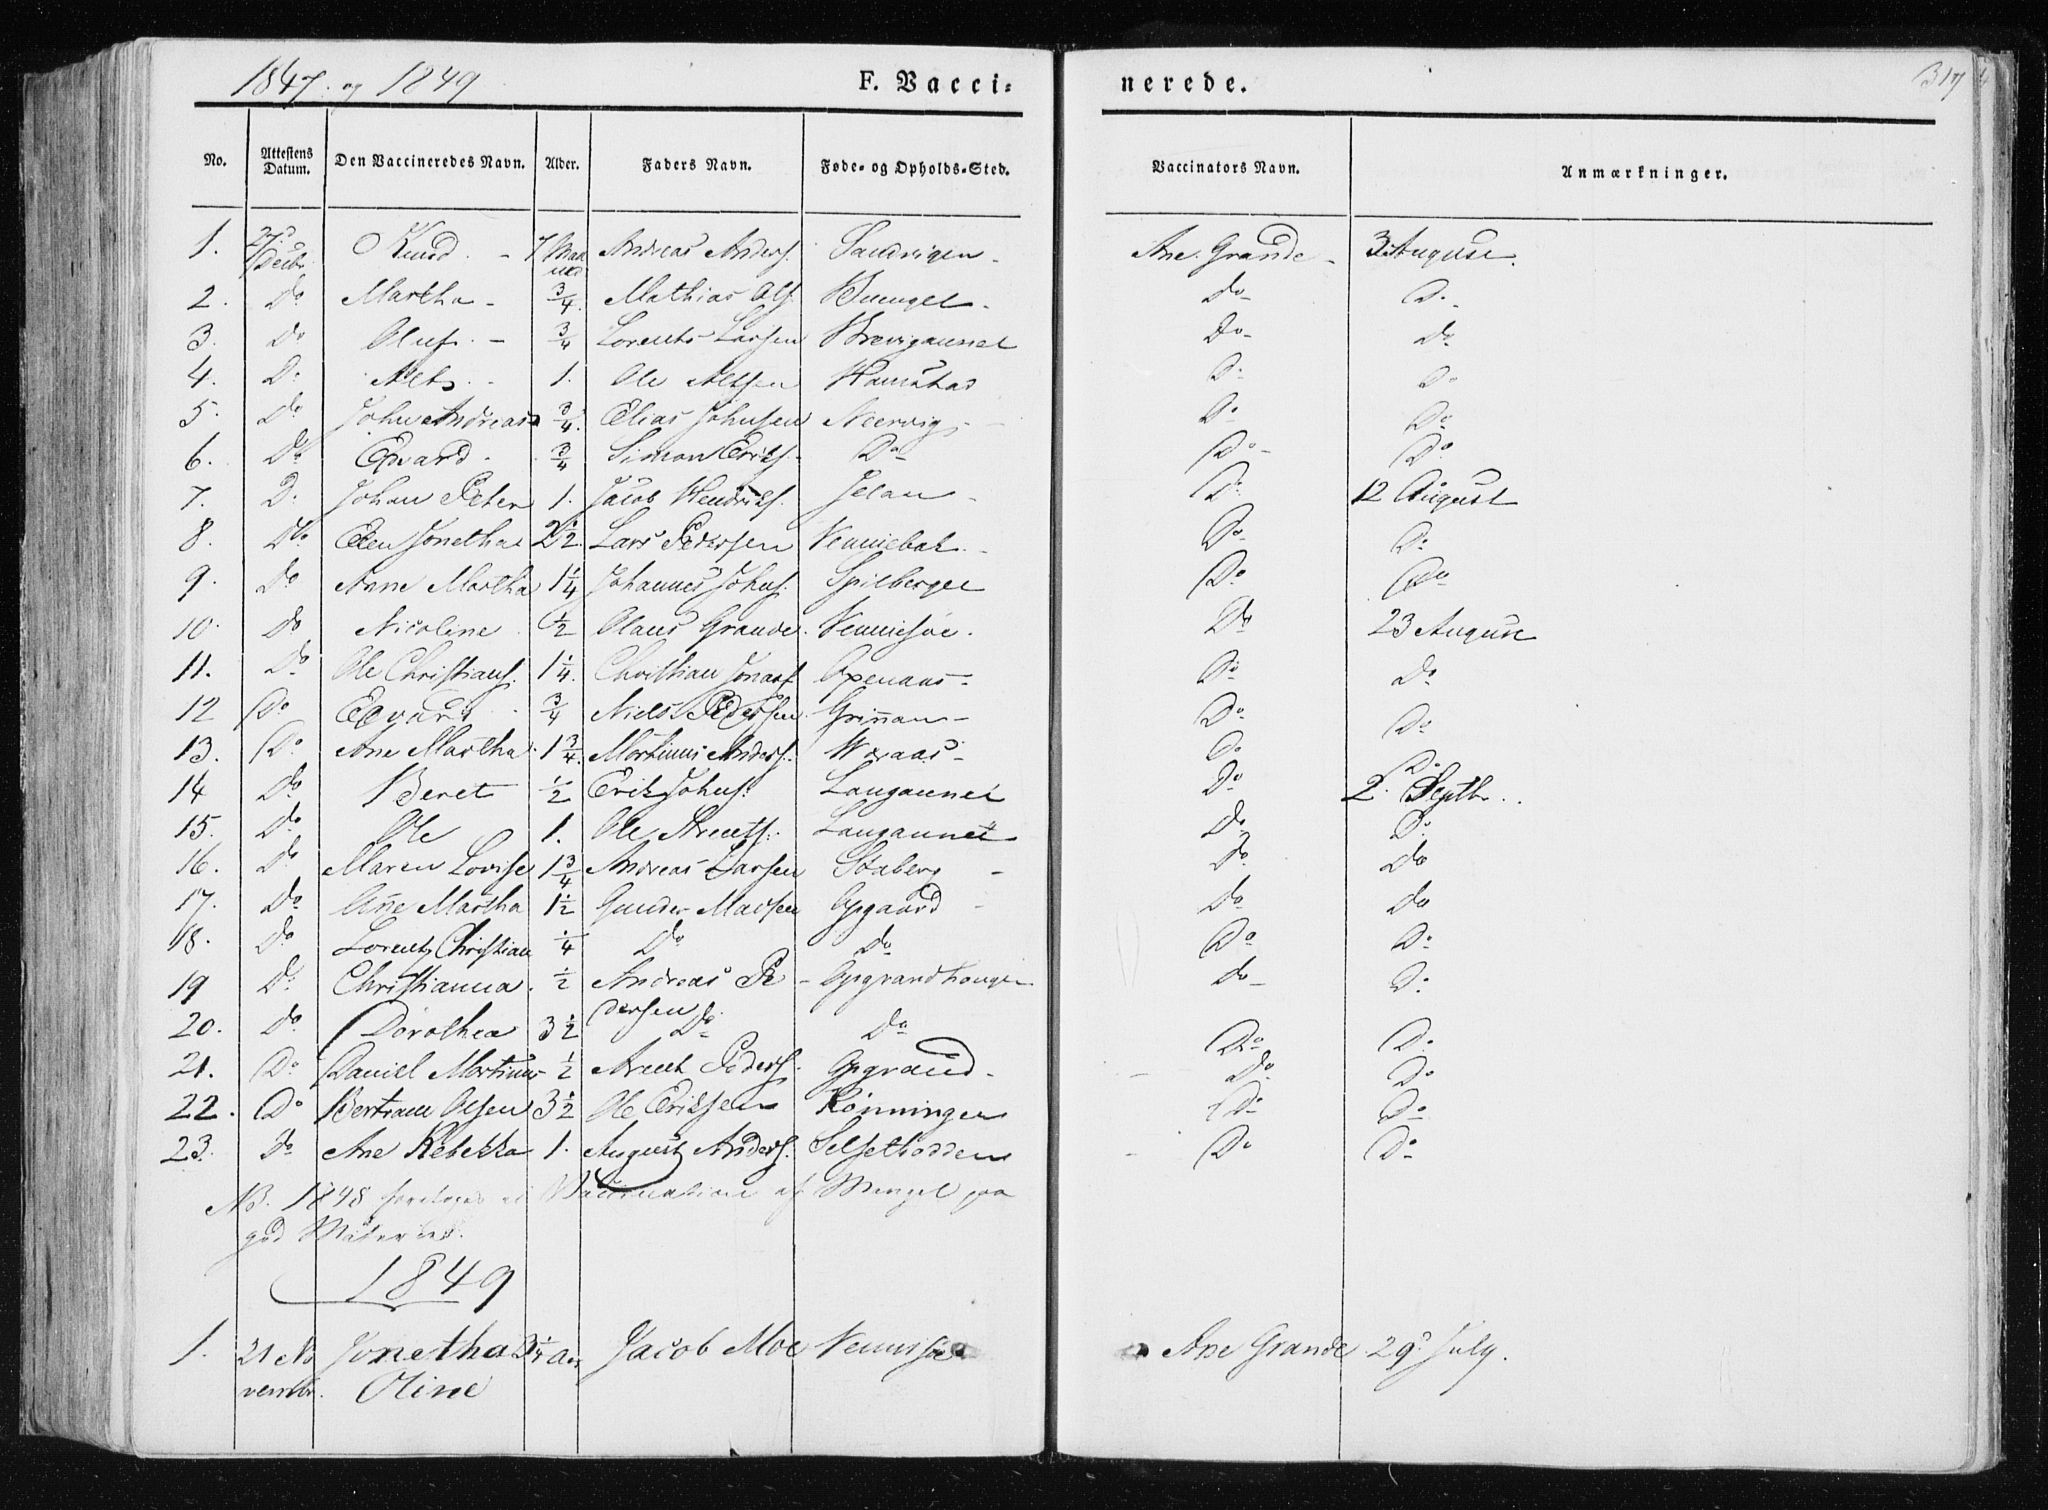 1847. og 1849 F. Vacci= nerede. 317
No. Attestens Datum. Den Vaccineredes Navn. Alder. Faders Navn. Føde= og Opholds=Sted. Vaccinators Navn. Anmærkninger.
1. 27 Decbr. Knud. - 7 Andreas Anders. Sandvigen - Ane Grande - 3 August.
2. Do Martha - 3/4 Mathias Ols. - Do - Do -
3. Do Oluf. - 3/4 Lorents Larsen Do - Do
4. Do 1. Ole Do Do
5. Do John Andreas 3/4. Elias Johnsen Neervig - Do Do
6. Do Edvard - 3/4 Simon Eriks. Do Do - Do
7. D. Johan Peter 1. Jacob Hendriks. Jelan - Do 12 August
8. Do Elen Jonetha 2 1/2 Lars Pedersen Do Do
9. Do Anne Martha 1 1/4 Johannes Johns. Spilberget Do Do
10. Do Nicoline 1/2 Olaus Grande. Do 23 August
11. Do Ole Christians. 1 1/4. Christian Jonas. Do Do
12 Do Edvard 3/4 Niels Pedersen Grinnan - Do Do
13. Do Ane Martha 1 3/4. Mortinus Anders. Do Do
14 Do Beret 1/2 Erik Johns. Langaunet Do 2. Septbr.
15. Do Ole 1. Ole Arents. Langaunet Do Do
16. Do Maren Lovise 1 3/4 Andreas Larsen Staberg - Do Do
17. Do Ane Martha 1 1/2 Gunder Madsen Opgaard - Do Do
18. Do Lorents Christian 1/4 Do Do Do Do
19 Do Christianna. 1/2 Andreas Pe - Opgrandhougen Do - Do
dersen
20. Do Dorothea 3 1/2 Do Do Do Do
21. Do Daniel Mortinus 1/2 Arent Peders. Opgrand. Do Do
22. Do Bertram Olsen 3 1/2 Ole Eriksen Rønningen Do Do
23. Do Ane Rebekka 1. August Anders. Selsetodden Do Do
NB. 1848 foretoges ei Vaccination af Mangel paa
god Materie.
1849
1. 21 No Jonetha 3 1/4 Aar Jacob Moe Ane Grande 29 July.
vembr. Oline